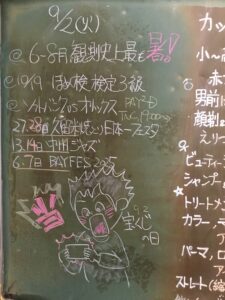 9/2(火)
@ 6〜8月 観測史上最も暑!
@ 10/19 ほめ検 検定3級
@ ソフトバンク vs オリックス
27.28日 久留米焼とり日本一フェスタ
13.14日 中州ジャズ
6.7日 BAY FES 2025
当
9.2
宝くじ
の日
カッ
小〜高
赤
男前
顔剃
えり
ビューティー
シャンプー
☆トリートメン
カラー
パーマ,
ストレート(縮